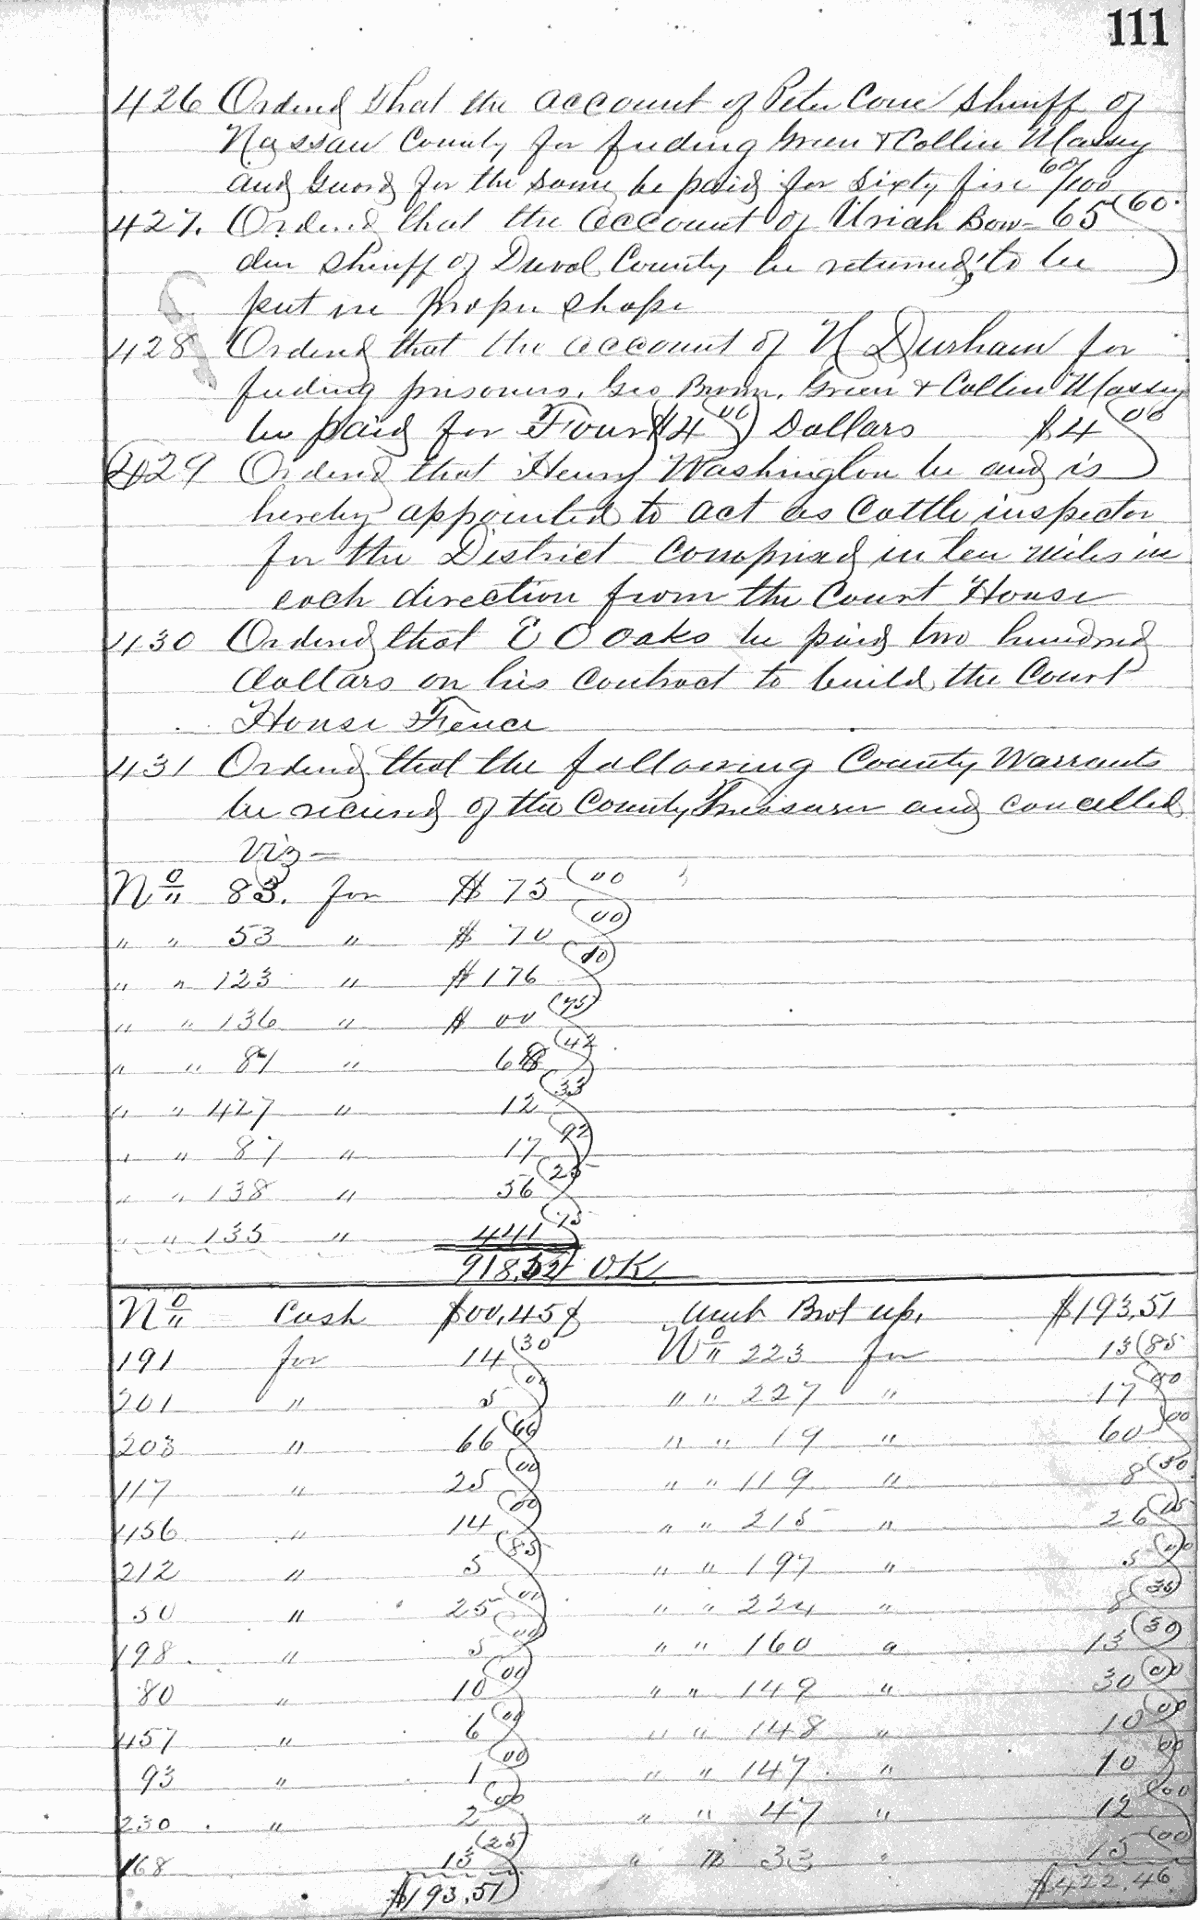 111
426 Ordered that the account of Peter Cone Sheriff of
Nassau County for feeding Green & Collin Massey
and Guard for the same be paid for Sixty five 60/100
427. Ordered that the account of Uriah Bow= 65 60.
den Sheriff of Duval County be returned, to be
put in proper shape
428 Ordered that the account of H Durham for
feeding prisoners, Geo Brown, Green & Collin Massey
be paid for Four ($4 00) Dollars $4 00
429 Ordered that Henry Washington be and is
hereby appointed to act as Cattle inspector
for the District comprised in ten miles in
each direction from the Court House
430 Ordered that E O Oaks be paid two hundred
dollars on his contract to build the Court
House Fence
431 Ordered that the following County Warrants
be received of the County Treasurer and cancelled
Viz —
No " 83. for $ 75 00
" " 53 " $ 70 00
" " 123 " $ 176 10
" " 136 " $ 00 75
" " 84 " 68 42
" " 427 " 12 33
" " 87 " 17 92
" " 138 " 56 25
" " 135 " 441 75
918.52 O.K.
No " Cash $00,45¢ Brot up, $193,51
191 for 14 30 No " 223 for 13 85
201 " 5 00 " " 227 " 17 00
203 " 66 66 " " 19 " 60 00
117 " 25 00 " " 119 " 8 50
456 " 14 00 " " 215 " 26 45
212 " 5 85 " " 197 " 5 00
50 " 25 00 " " 224 " 8 35
198 " 5 00 " " 160 " 13 30
80 " 10 00 " " 149 " 30 00
457 " 6 00 " " 148 " 10 00
93 " 1 00 " " 147 " 10 00
230 " 2 00 " " 47 " 12 00
168 13 25 " " 33 " 15 00
$193,51 $422,46